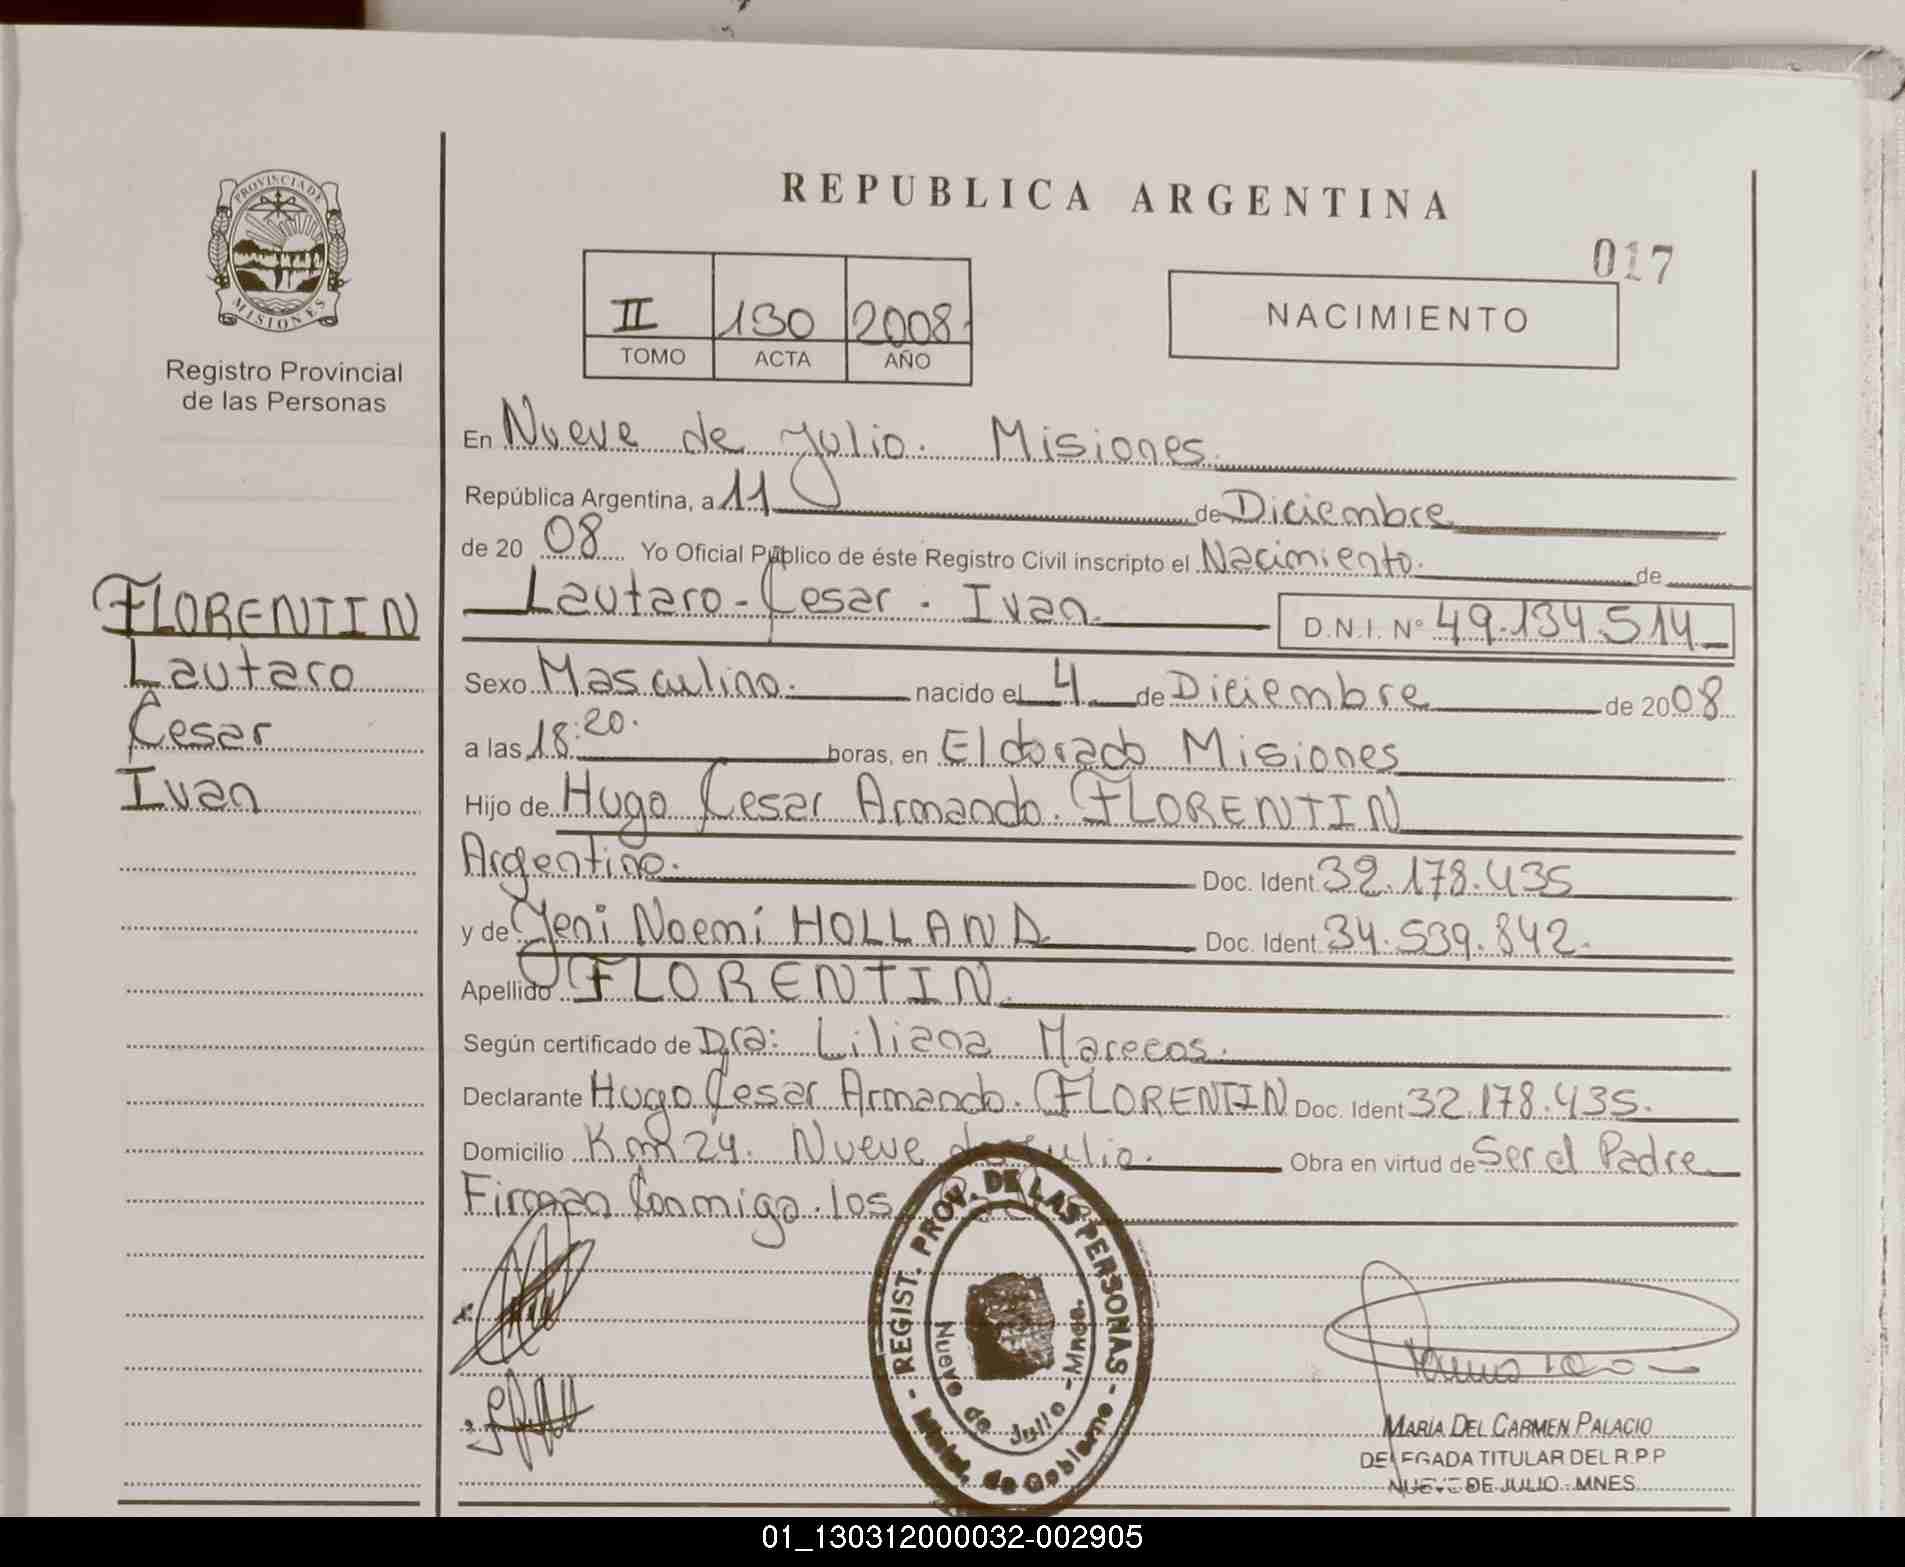 PROVINCIA DE
MISIONES
Registro Provincial
de las Personas
FLORENTIN
Lautaro
Cesar
Ivan
REPUBLICA ARGENTINA
017
II 130 2008
TOMO ACTA AÑO
NACIMIENTO
En Nueve de Julio. Misiones.
República Argentina, a 11 de Diciembre
de 20 08 Yo Oficial Público de éste Registro Civil inscripto el Nacimiento. de
Lautaro - Cesar - Ivan. D.N.I. Nº 49.134.514
Sexo Masculino. nacido el 4 de Diciembre de 2008
a las 18:20. horas, en Eldorado Misiones
Hijo de Hugo Cesar Armando. FLORENTIN
Argentino. Doc. Ident 32.178.435
y de Yeni Noemí HOLLAND Doc. Ident. 34.539.842.
Apellido FLORENTIN.
Según certificado de Dra: Liliana Marecos.
Declarante Hugo Cesar Armando. FLORENTIN Doc. Ident 32.178.435.
Domicilio Km 24. Nueve de Julio. Obra en virtud de Ser el Padre
Firman Conmigo los
REGIST. PROV. DE LAS PERSONAS
Nueve de Julio - Mnes.
- Minist. de Gobierno -
MARIA DEL CARMEN PALACIO
DELEGADA TITULAR DEL R.P.P
NUEVE DE JULIO - MNES
01_130312000032-002905